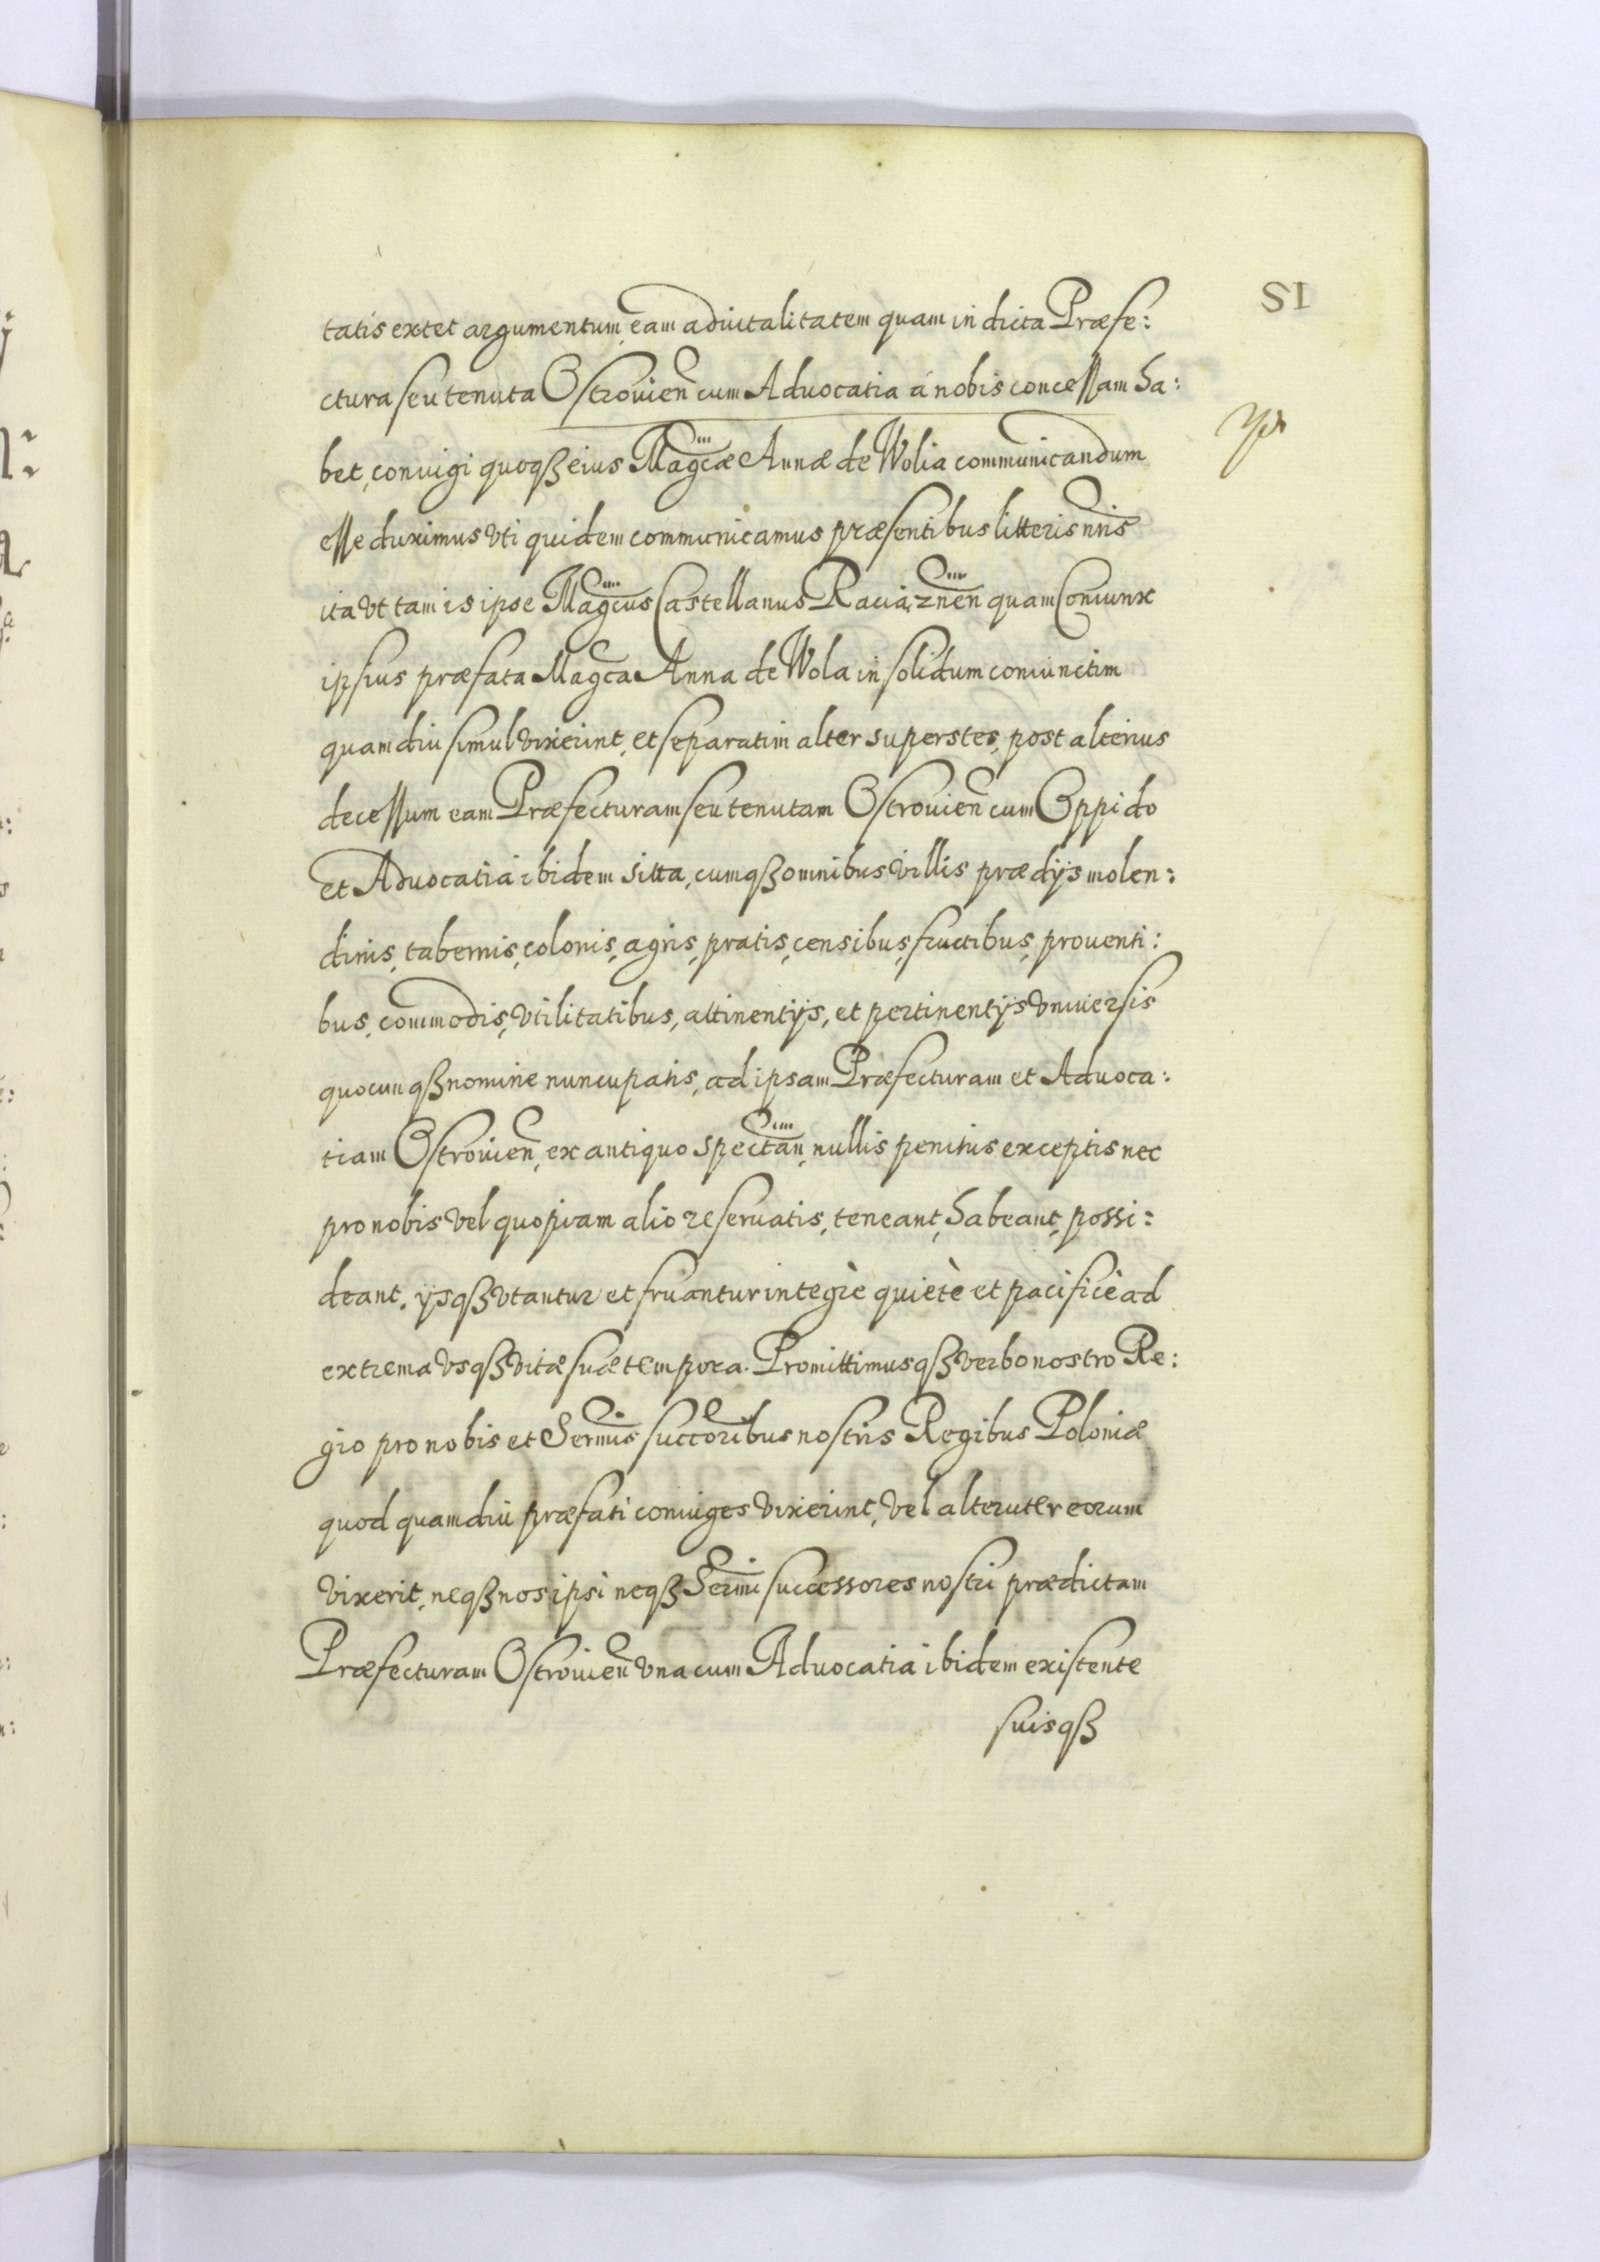 tatis extet argumentum, eam aduitalitatem quam in dicta Præfe:
ctura seu tenuta Ostrouien̄ cum Aduocatia á nobis concessam ha:
bet, coniugi quoqꝫ eius Mag̃cæ Annæ de Wolia communicandum
esse duximus vti quidem communicamus præsentibus litteris nr̃is
ita vt tam is ipse Mag̃cus Castellanus Raciążnen̄ quam Coniunx
ipsius præfata Mag̃ca Anna de Wola in solidum coniunctim
quamdiu simul vixerint, et separatim alter superstes, post alterius
decessum eam Præfecturam seu tenutam Ostrouien̄ cum Oppido
et Aduocatia ibidem sitta, cumqꝫ omnibus villis prædijs molen:
dinis, tabernis, colonis, agris, pratis, censibus, fructibus, prouenti:
bus, commodis, vtilitatibus, attinentijs, et pertinentijs vniuersis
quocunqꝫ nomine nuncupatis, ad ipsam Præfecturam et Aduoca:
tiam Ostrouien̄, ex antiquo spectan̄, nullis penitus exceptis nec
pro nobis vel quopiam alio reseruatis, teneant, habeant, possi:
deant. ijsqꝫ vtantur et fruantur integrè quietè et pacificè ad
extrema vsqꝫ vitæ suæ tempora. Promittimusqꝫ verbo nostro Re:
gio pro nobis et Serm̃is succoribus nostris Regibus Poloniæ
quod quamdiu præfati coniuges vixerint, vel alteruter eorum
vixerit, neqꝫ nos ipsi neqꝫ Serm̃i successores nostri prædictam
Præfecturam Ostrouien̄ vna cum Aduocatia ibidem existente
suisqꝫ